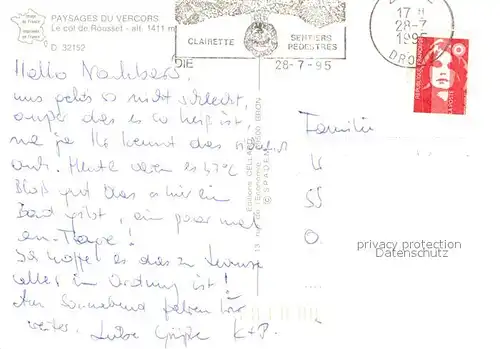 PAYSAGES DU VERCORS
Le col de Rousset - alt. 1411 m
D 32152
CLAIRETTE SENTIERS
PEDESTRES
DIE 28-7-95
17 H
28-7
1995
DROME
Hallo Nachbarn,
uns geht's nicht schlecht,
außer das es so heiß ist,
na ja Ihr kennt das
auch. Heute waren es 37°C
Bloß gut das es hier ein
Bad gibt, ein paar mal
am Tage!
Ich hoffe es das zu Hause
alles in Ordnung ist!
Am Sonnabend fahren wir
weiter. Liebe Grüße K+P.
Editions CELLARD
BRON
© SPADEM
REPUBLIQUE FRANÇAISE
LA POSTE
Familie
privacy protection
Datenschutz